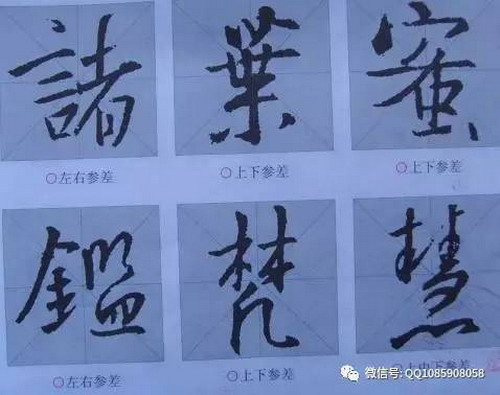 諸 葉 蜜
○左右参差 ○上下参差 ○上下参差
鑑 梵 慧
○左右参差 ○上下参差 上中下参差
微信号: QQ1085908058